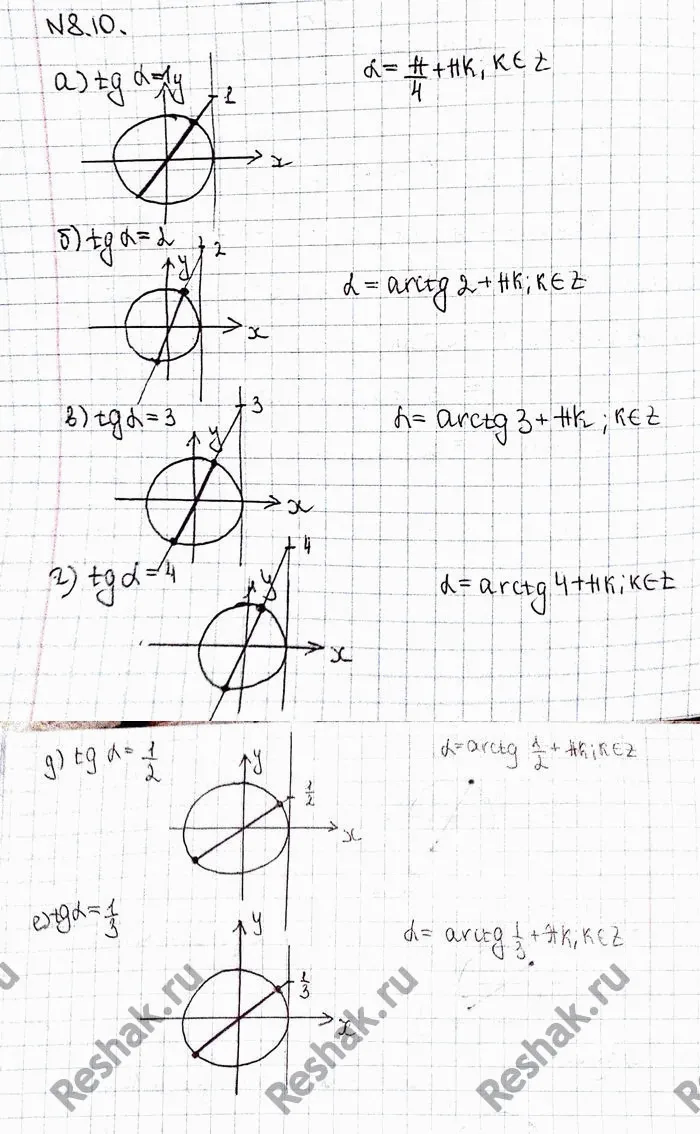 N8.10.
а) tg α=1
y
1
x
α = π/4 + πk, k∈Z
б) tg α = 2
y
2
x
α = arctg 2 + πk; k∈Z
в) tg α = 3
y
3
x
α = arctg 3 + πk ; k∈Z
г) tg α = 4
y
4
x
α = arctg 4 + πk; k∈Z
д) tg α = 1/2
y
1/2
x
α = arctg 1/2 + πk; k∈Z
е) tg α = 1/3
y
1/3
x
α = arctg 1/3 + πk, k∈Z
Reshak.ru
Reshak.ru
Reshak.ru